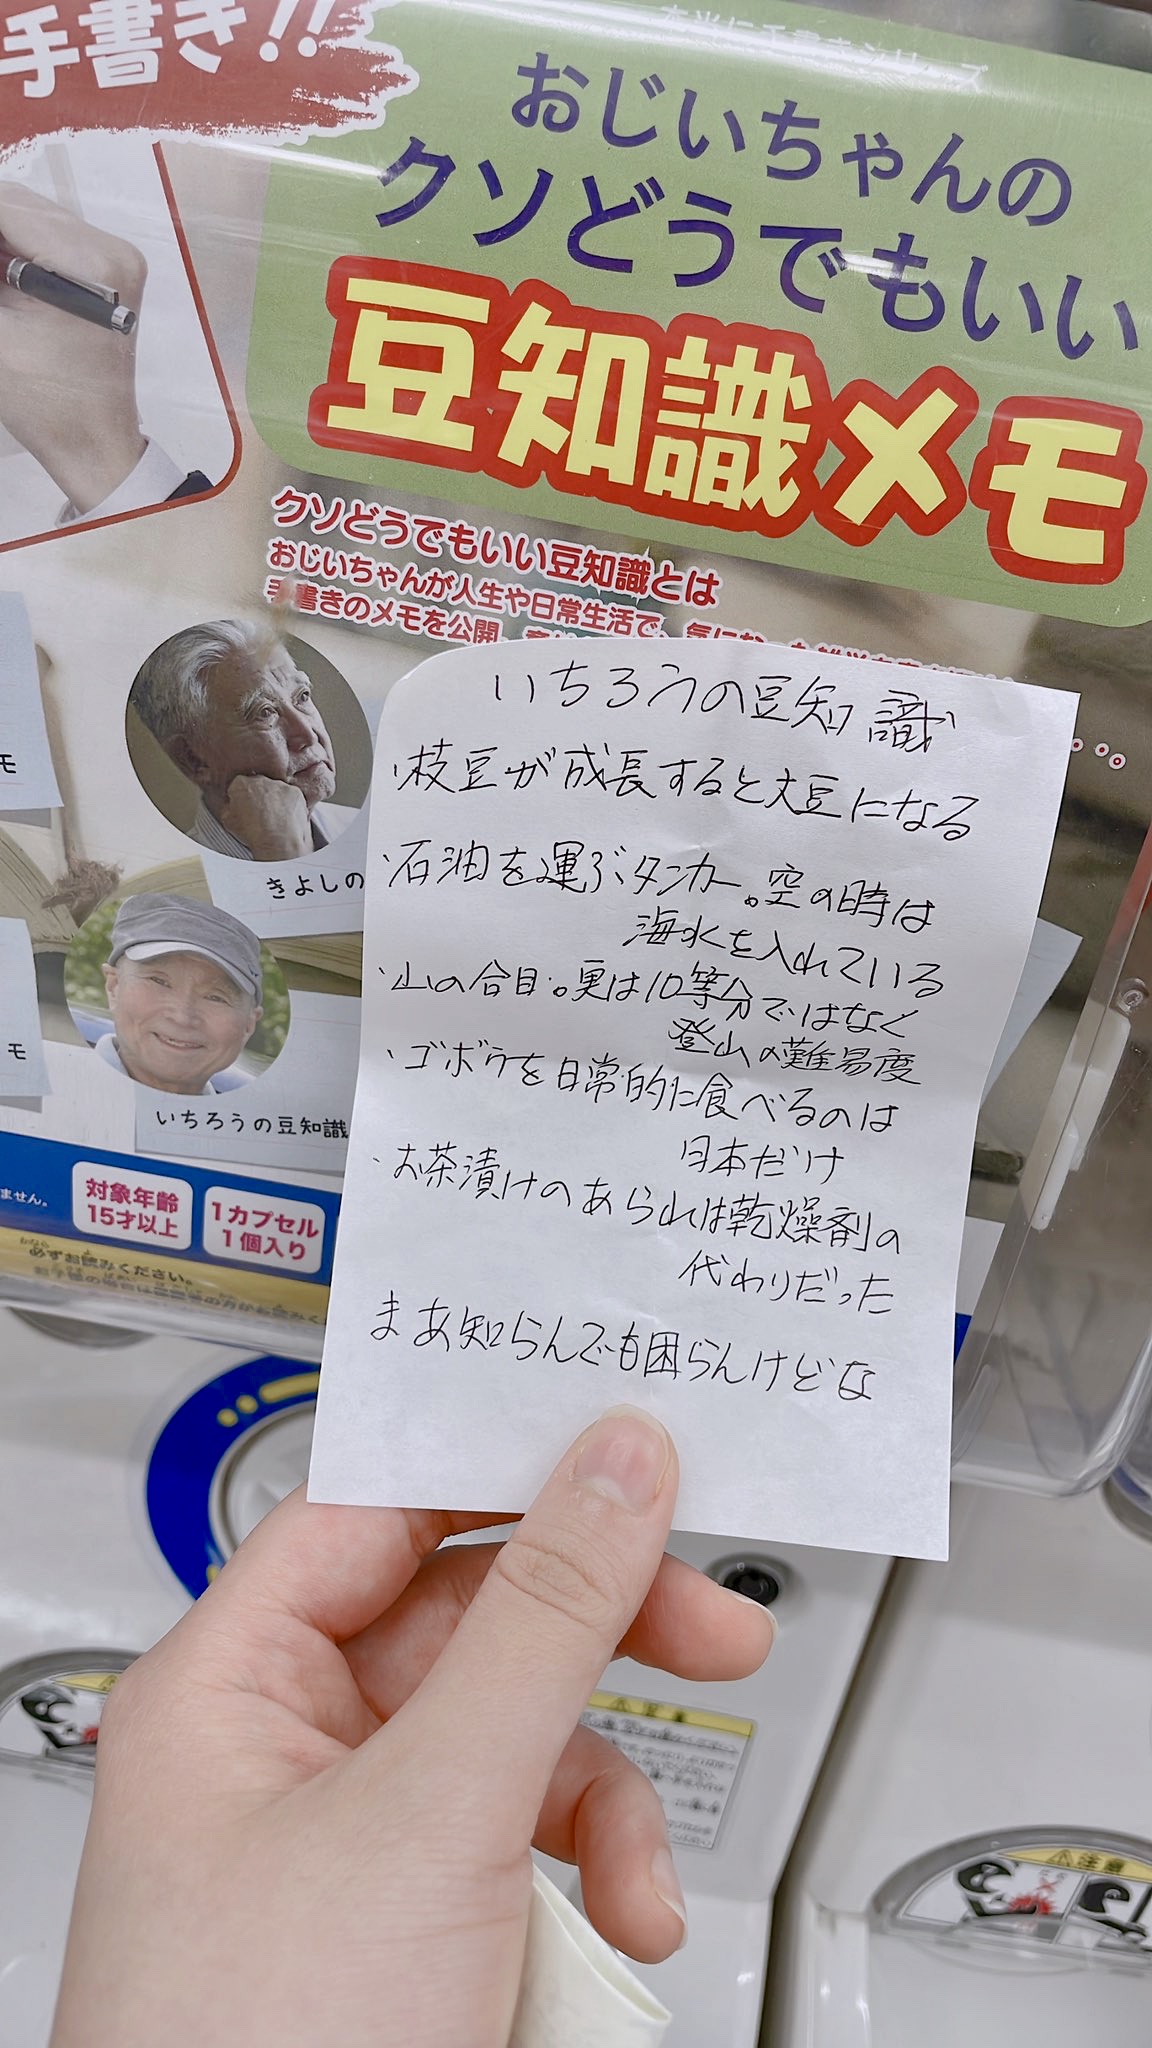 手書き!!
おじいちゃんの
クソどうでもいい
豆知識メモ
クソどうでもいい豆知識とは
おじいちゃんが人生や日常生活で、気になった
手書きのメモを公開。
モ
きよしの
モ
いちろうの豆知識
ません。
対象年齢
15才以上
1カプセル
1個入り
必ずお読みください。
いちろうの豆知識
・枝豆が成長すると大豆になる
・石油を運ぶタンカー。空の時は
海水を入れている
・山の合目。実は10等分ではなく
登山の難易度
・ゴボウを日常的に食べるのは
日本だけ
・お茶漬けのあられは乾燥剤の
代わりだった
まあ知らんでも困らんけどな
注意